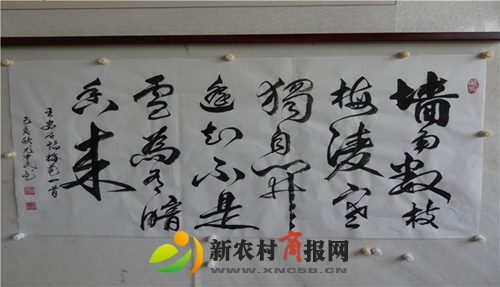 墙角数枝
梅凌寒
獨自开
遥知不是
雪為有暗
香来
王安石咏梅花一首
己亥秋
新农村商报网
WWW.XNCSB.CN